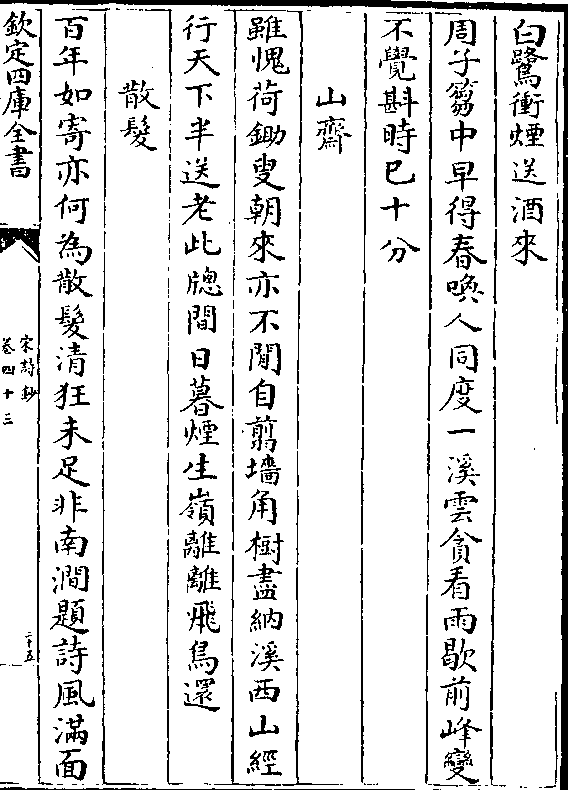 白鷺衝煙送酒來
周子篘中早得春喚人同度一溪雲貪看雨歇前峰變
不覺斟時已十分
山齋
雖愧荷鋤叟朝來亦不閒自翦墻角樹盡納溪西山經
行天下半送老此牕間日暮煙生嶺離離飛鳥還
散髮
百年如寄亦何為散髮清狂未足非南澗題詩風滿面
欽定四庫全書
宋詩鈔
卷四十三
二十五